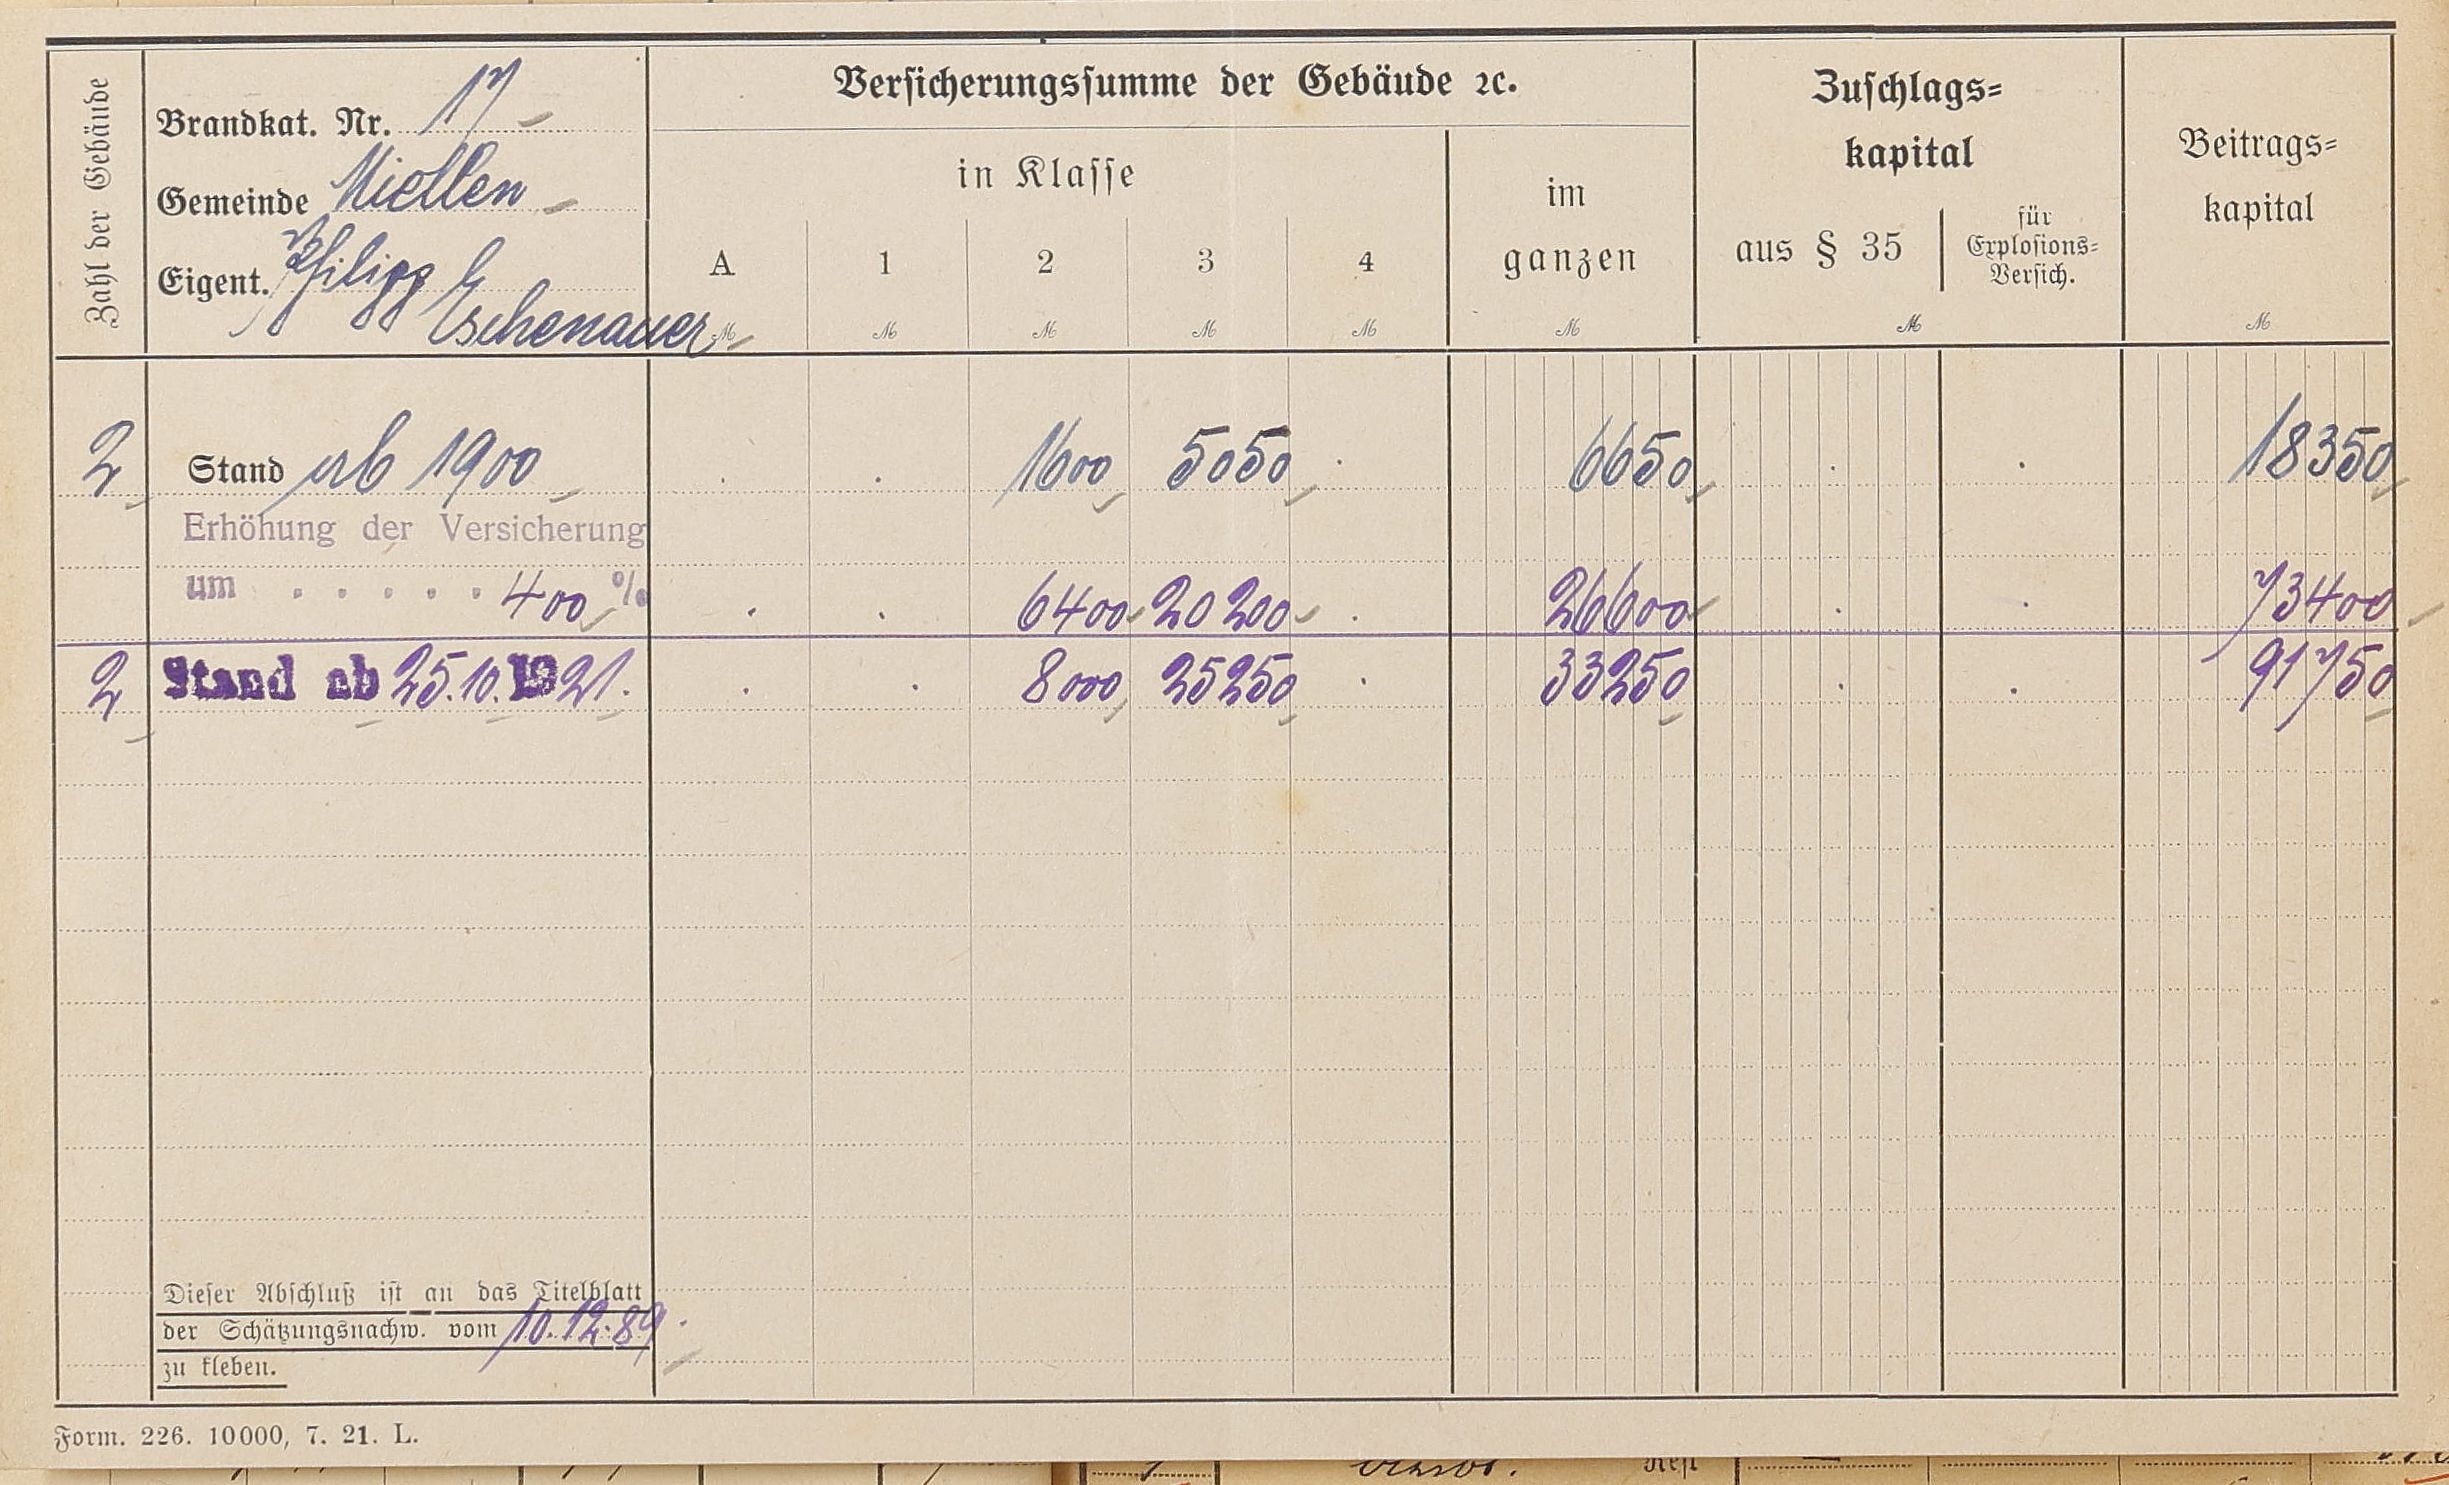 Zahl der Gebäude
Brandkat. Nr. 17
Gemeinde Miellen
Eigent. Philipp
Eschenauer
Versicherungssumme der Gebäude ꝛc.
in Klasse
A 1 2 3 4
im
ganzen
ℳ ℳ ℳ ℳ ℳ ℳ
Zuschlags=
kapital
aus § 35
für
Explosions=
Versich.
ℳ
Beitrags=
kapital
ℳ
2 Stand ab 1900 . . 1600 5050 . 6650 . . 18350
Erhöhung der Versicherung
um . . . . . 400 % . . 6400 20200 . 26600 . . 73400
2 Stand ab 25.10.1921. . . 8000 25250 . 33250 . . 91750
Dieser Abschluß ist an das Titelblatt
der Schätzungsnachw. vom 10.12.89.
zu kleben.
Form. 226. 10000, 7. 21. L.